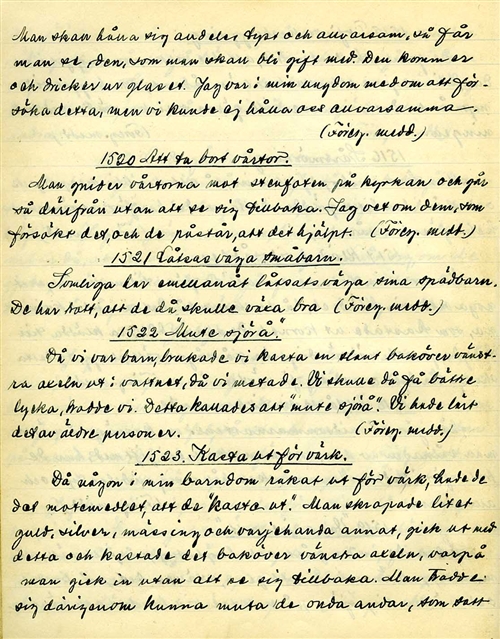 Man skall hålla sig alldeles tyst och allvarsam, så får
man se den, som man skall bli gift med. Den kommer
och dricker ur glaset. Jag var i min ungdom med om att för-
söka detta, men vi kunde ej hålla oss allvarsamma.
(Föreg. medd.)
1520 Att ta bort vårtor.
Man gnider vårtorna mot stenfoten på kyrkan och går
så därifrån utan att se sig tillbaka. Jag vet om dem, som
försökt det, och de påstår, att det hjälpt. (Föreg. medd.)
1521 Låtsas väga småbarn.
Somliga har emellanåt låtsats väga sina spädbarn.
De har trott, att de då skulle växa bra (Föreg. medd.)
1522 "Mute sjörå".
Då vi var barn, brukade vi kasta en slant baköver vänst-
ra axeln ut i vattnet, då vi metade. Vi skulle då få bättre
lycka, trodde vi. Detta kallades att "mute sjörå". Vi hade lärt
det av äldre personer. (Föreg. medd.)
1523. Kasta ut för värk.
Då någon i min barndom råkat ut för värk, hade de
det motemedlet, att de "kasta ut". Man skrapade litet
guld, silver, mässing och varjehanda annat, gick ut med
detta och kastade det baköver vänstra axeln, varpå
man gick in utan att se sig tillbaka. Man trodde
sig därigenom kunna muta de onda andar, som satt